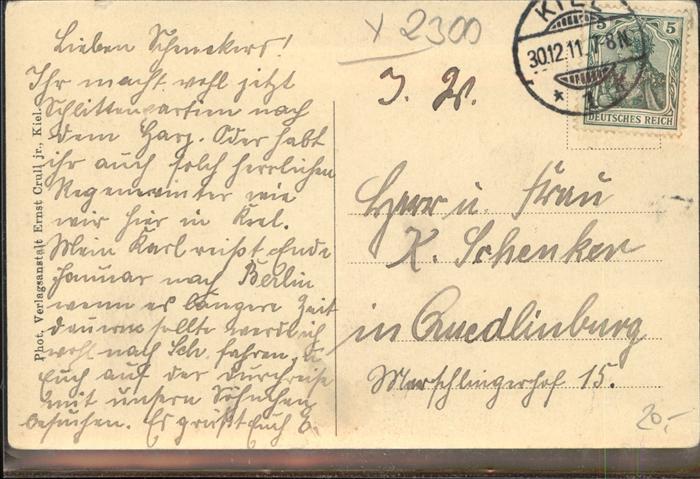 Lieben Schenkers!
Ihr macht wohl jetzt
Schlittenpartien nach
dem Harz. Oder habt
ihr auch solch herrlichen
Regenwinter wie
wir hier in Kiel.
Mein Karl reißt Ende
Januar nach Berlin
wenn es längere Zeit
dauern sollte werde ich
wohl nach Sch. fahren, u.
Euch auf der Durchreise
mit unsern Söhnchen
besuchen. Es grüßt Euch
Phot. Verlagsanstalt Ernst Crull jr., Kiel.
x 2300
KIEL
30.12.11. 7-8 N.
* 1
5 5
DEUTSCHES REICH
Herr u. Frau
K. Schenker
in Quedlinburg
15.
20,-